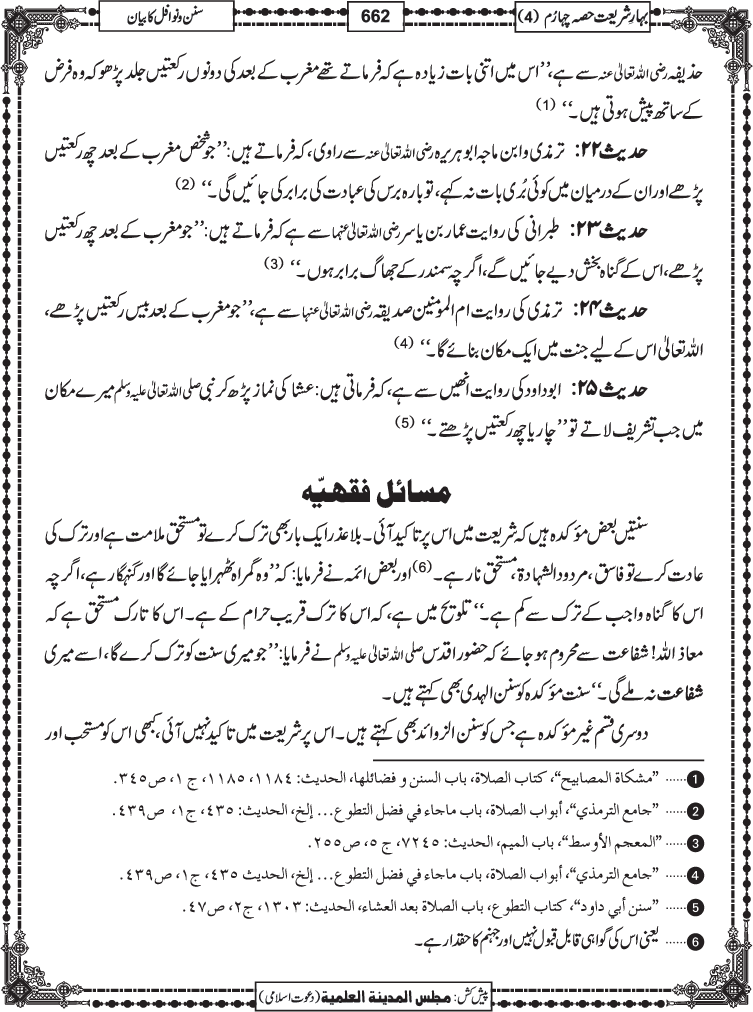 بہارِ شریعت حصہ چہارم (4)
662
سنن و نوافل کا بیان
حذیفہ رضی اللہ تعالیٰ عنہ سے ہے، ’’اس میں اتنی بات زیادہ ہے کہ فرماتے تھے مغرب کے بعد کی دونوں رکعتیں جلد پڑھو کہ وہ فرض
کے ساتھ پیش ہوتی ہیں۔‘‘ (1)
حدیث ۲۲: ترمذی و ابن ماجہ ابوہریرہ رضی اللہ تعالیٰ عنہ سے راوی، کہ فرماتے ہیں: ’’جو شخص مغرب کے بعد چھ رکعتیں
پڑھے اور ان کے درمیان میں کوئی بُری بات نہ کہے، تو بارہ برس کی عبادت کی برابر کی جائیں گی۔‘‘ (2)
حدیث ۲۳: طبرانی کی روایت عمار بن یاسر رضی اللہ تعالیٰ عنہا سے ہے کہ فرماتے ہیں: ’’جو مغرب کے بعد چھ رکعتیں
پڑھے، اس کے گناہ بخش دیے جائیں گے، اگرچہ سمندر کے جھاگ برابر ہوں۔‘‘ (3)
حدیث ۲۴: ترمذی کی روایت ام المومنین صدیقہ رضی اللہ تعالیٰ عنہا سے ہے، ’’جو مغرب کے بعد بیس رکعتیں پڑھے،
اللہ تعالیٰ اس کے لیے جنت میں ایک مکان بنائے گا۔‘‘ (4)
حدیث ۲۵: ابوداود کی روایت انھیں سے ہے، کہ فرماتی ہیں: عشا کی نماز پڑھ کر نبی صلی اللہ تعالیٰ علیہ وسلم میرے مکان
میں جب تشریف لاتے تو ’’چار یا چھ رکعتیں پڑھتے۔‘‘ (5)
مسائل فقھیّہ
سنتیں بعض مؤکدہ ہیں کہ شریعت میں اس پر تاکید آئی۔ بلا عذر ایک بار بھی ترک کرے تو مستحق ملامت ہے اور ترک کی
عادت کرے تو فاسق، مردود الشہادۃ، مستحق نار ہے۔(6) اور بعض ائمہ نے فرمایا: کہ ’’وہ گمراہ ٹھہرایا جائے گا اور گنہگار ہے، اگرچہ
اس کا گناہ واجب کے ترک سے کم ہے۔‘‘ تلویح میں ہے، کہ اس کا ترک قریب حرام کے ہے۔ اس کا تارک مستحق ہے کہ
معاذ اللہ! شفاعت سے محروم ہو جائے کہ حضور اقدس صلی اللہ تعالیٰ علیہ وسلم نے فرمایا: ’’جو میری سنت کو ترک کرے گا، اسے میری
شفاعت نہ ملے گی۔‘‘ سنت مؤکدہ کو سنن الہدی بھی کہتے ہیں۔
دوسری قسم غیر مؤکدہ ہے جس کو سنن الزوائد بھی کہتے ہیں۔ اس پر شریعت میں تاکید نہیں آئی، کبھی اس کو مستحب اور
1 ...... ’’مشكاة المصابيح‘‘، كتاب الصلاة، باب السنن و فضائلها، الحديث: ۱۱۸۴، ۱۱۸۵، ج ۱، ص۳۴۵.
2 ...... ’’جامع الترمذي‘‘، أبواب الصلاة، باب ماجاء في فضل التطوع... إلخ، الحديث: ۴۳۵، ج۱، ص۴۳۹.
3 ...... ’’المعجم الأوسط‘‘، باب الميم، الحديث: ۷۲۴۵، ج ۵، ص۲۵۵.
4 ...... ’’جامع الترمذي‘‘، أبواب الصلاة، باب ماجاء في فضل التطوع... إلخ، الحديث ۴۳۵، ج۱، ص۴۳۹.
5 ...... ’’سنن أبي داود‘‘، كتاب التطوع، باب الصلاة بعد العشاء، الحديث: ۱۳۰۳، ج۲، ص۴۷.
6 ...... یعنی اس کی گواہی قابل قبول نہیں اور جہنم کا حقدار ہے۔
پیش کش: مجلس المدینۃ العلمیۃ (دعوت اسلامی)